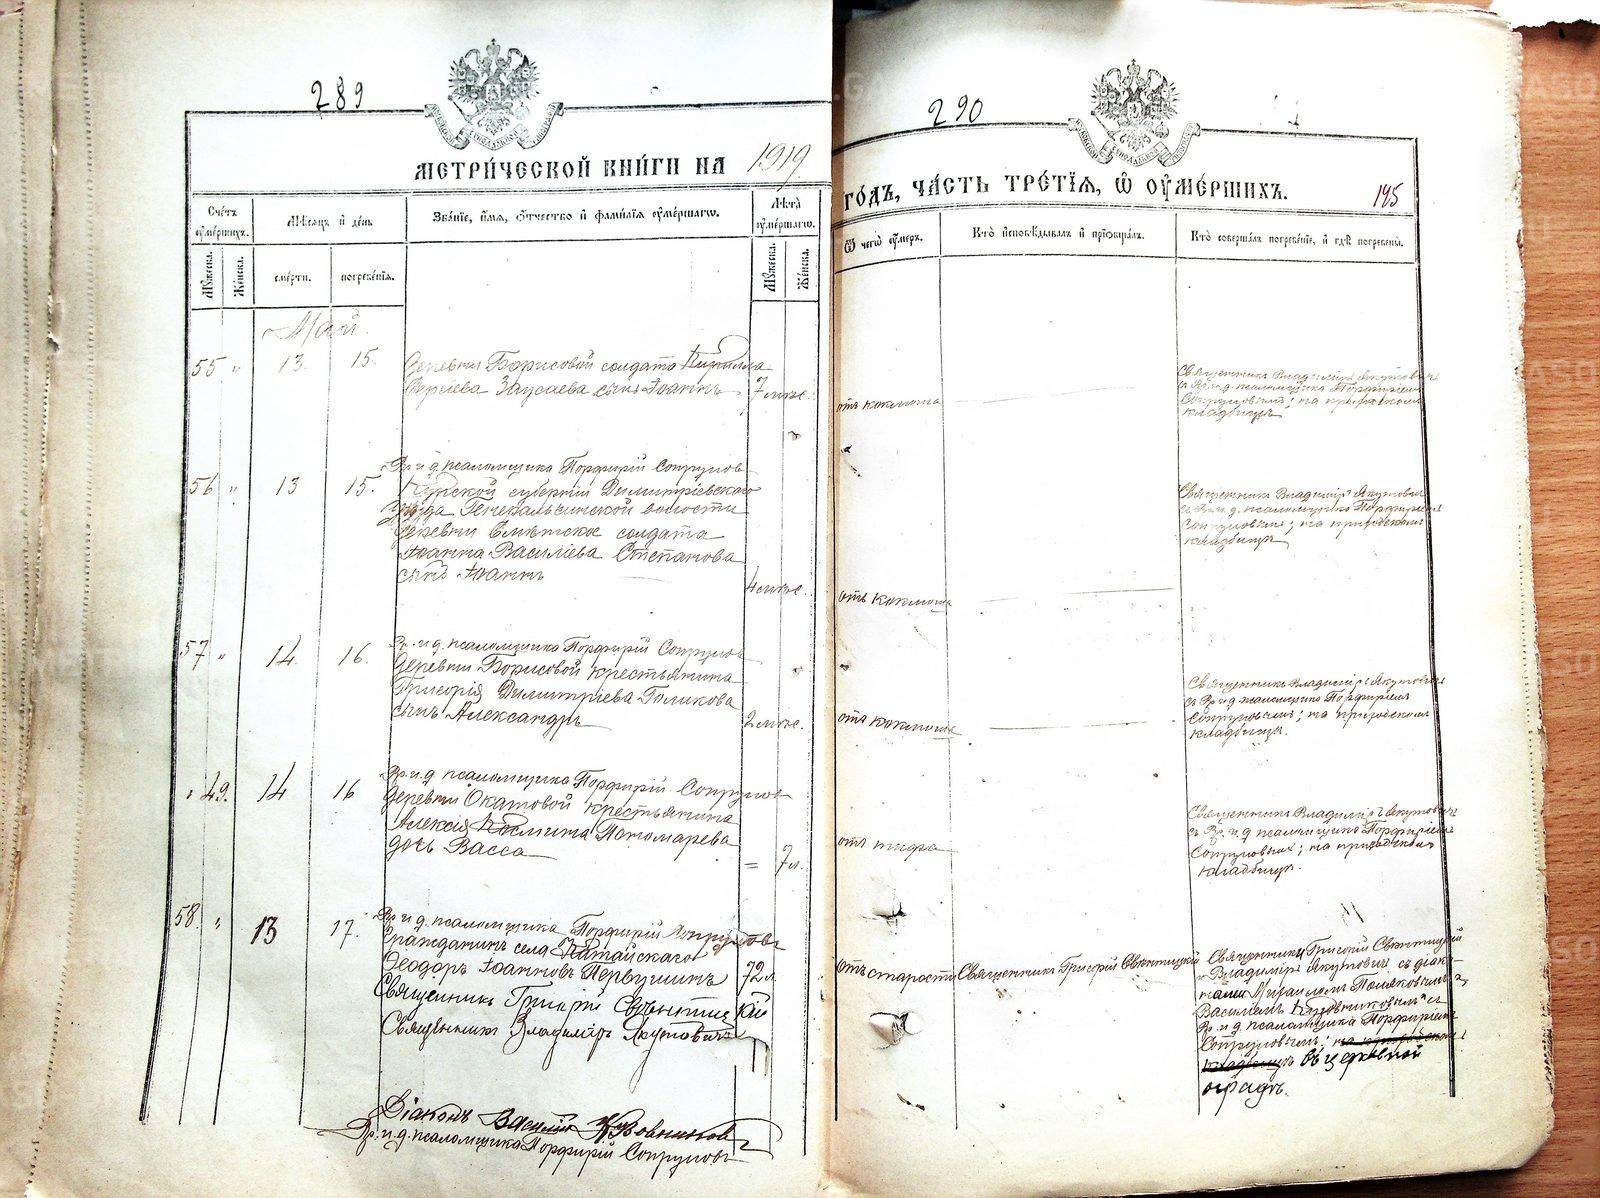 289
МЕТРИ́ЧЕСКОЙ КНИ́ГИ НА 1919
Сче́тъ ᲂу҆ме́ршихъ.
Мѣ́сяцъ и҆ де́нь
Зва́нїе, и҆́мя, ѻ҆́тчество и҆ фами́лїя ᲂу҆ме́ршагѡ.
Лѣ́та ᲂу҆ме́ршагѡ.
Мꙋ́жеска. Же́нска. сме́рти. погребе́нїя. Мꙋ́жеска. Же́нска.
Май.
55 " 13. 15. Деревни Борисовой солдата Кирилла
сынъ Іоаннъ 7 мѣс.
Вр. и. д. псаломщика Порфирій Сопруновъ
56 " 13 15. Курской губерніи Димитріевскаго
уѣзда волости
деревни солдата
Іоанна Васильева Степанова
сынъ Іоаннъ 4 мѣс.
Вр. и д. псаломщика Порфирій Сопруновъ
57 " 14. 16. деревни Борисовой крестьянина
Григорія Димитріева Голикова
сынъ Александръ 2 мѣс.
Вр. и д псаломщика Порфирій Сопруновъ
" 49. 14 16 деревни Окатовой крестьянина
Алексія Космина Пономарева
дочь Васса = 7 л.
Вр. и д. псаломщика Порфирій Сопруновъ
58. " 13 17. Гражданинъ села Китайскаго
Ѳеодоръ Іоанновъ Первушинъ 72 л
Священникъ Григорій Свѣнтицкій
Священникъ Владиміръ Якутовичъ
Діаконъ Василій
Вр. и. д. псаломщика Порфирій Сопруновъ
290
ГО́ДЪ, ЧА́СТЬ ТРЕ́ТЇЯ, Ѽ ОУ҆МЕ́РШИХЪ. 195
Ѿ чегѡ̀ ᲂу҆́меръ.
Кто̀ и҆сповѣ́дывалъ и҆ прїѡбща́лъ.
Кто̀ соверша́лъ погребе́нїе, и҆ гдѣ̀ погребены̀.
отъ коклюша
Священникъ Владиміръ Якутовичъ
съ Вр. и д. псаломщика Порфиріемъ
Сопруновымъ; на приходскомъ
кладбищѣ
отъ коклюша
Священникъ Владиміръ Якутовичъ
съ Вр. и д. псаломщика Порфиріемъ
Сопруновымъ; на приходскомъ
кладбищѣ
отъ коклюша
Священникъ Владиміръ Якутовичъ
съ Вр. и д. псаломщика Порфиріемъ
Сопруновымъ; на приходскомъ
кладбищѣ.
отъ тифа
Священникъ Владиміръ Якутовичъ
съ Вр. и д псаломщика Порфиріемъ
Сопруновымъ; на приходскомъ
кладбищѣ.
отъ старости Священникъ Григорій Свѣнтицкій
Священники Григорій Свѣнтицкій
и Владиміръ Якутовичъ съ діако-
нами Михаиломъ Поляковымъ и
Василіемъ съ
Вр. и д. псаломщика Порфиріемъ
Сопруновымъ; на приходскомъ
кладбищѣ въ церковной
оградѣ.